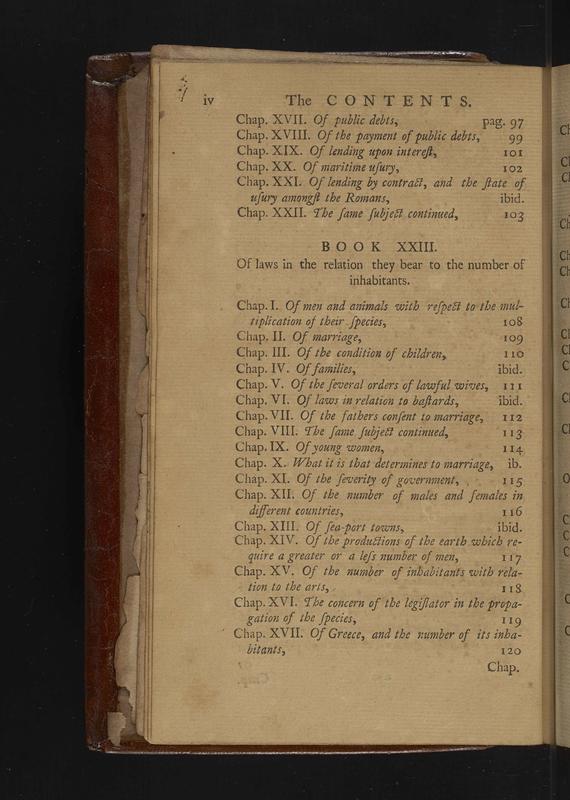 iv The CONTENTS.
Chap. XVII. Of public debts, pag. 97
Chap. XVIII. Of the payment of public debts, 99
Chap. XIX. Of lending upon intereſt, 101
Chap. XX. Of maritime uſury, 102
Chap. XXI. Of lending by contract, and the ſtate of
uſury amongſt the Romans, ibid.
Chap. XXII. The ſame ſubject continued, 103
BOOK XXIII.
Of laws in the relation they bear to the number of
inhabitants.
Chap. I. Of men and animals with reſpect to the mul-
tiplication of their ſpecies, 108
Chap. II. Of marriage, 109
Chap. III. Of the condition of children, 110
Chap. IV. Of families, ibid.
Chap. V. Of the ſeveral orders of lawful wives, 111
Chap. VI. Of laws in relation to baſtards, ibid.
Chap. VII. Of the fathers conſent to marriage, 112
Chap. VIII. The ſame ſubject continued, 113
Chap. IX. Of young women, 114
Chap. X. What it is that determines to marriage, ib.
Chap. XI. Of the ſeverity of government, 115
Chap. XII. Of the number of males and females in
different countries, 116
Chap. XIII. Of ſea-port towns, ibid.
Chap. XIV. Of the productions of the earth which re-
quire a greater or a leſs number of men, 117
Chap. XV. Of the number of inhabitants with rela-
tion to the arts, 118
Chap. XVI. The concern of the legiſlator in the propa-
gation of the ſpecies, 119
Chap. XVII. Of Greece, and the number of its inha-
bitants, 120
Chap.